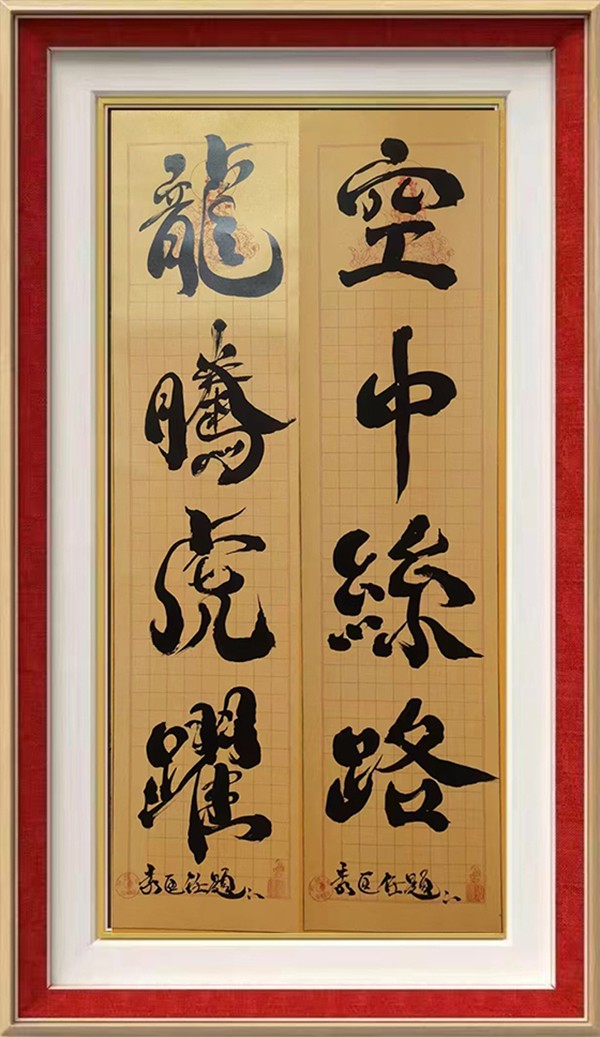 空中絲路
龍騰虎躍